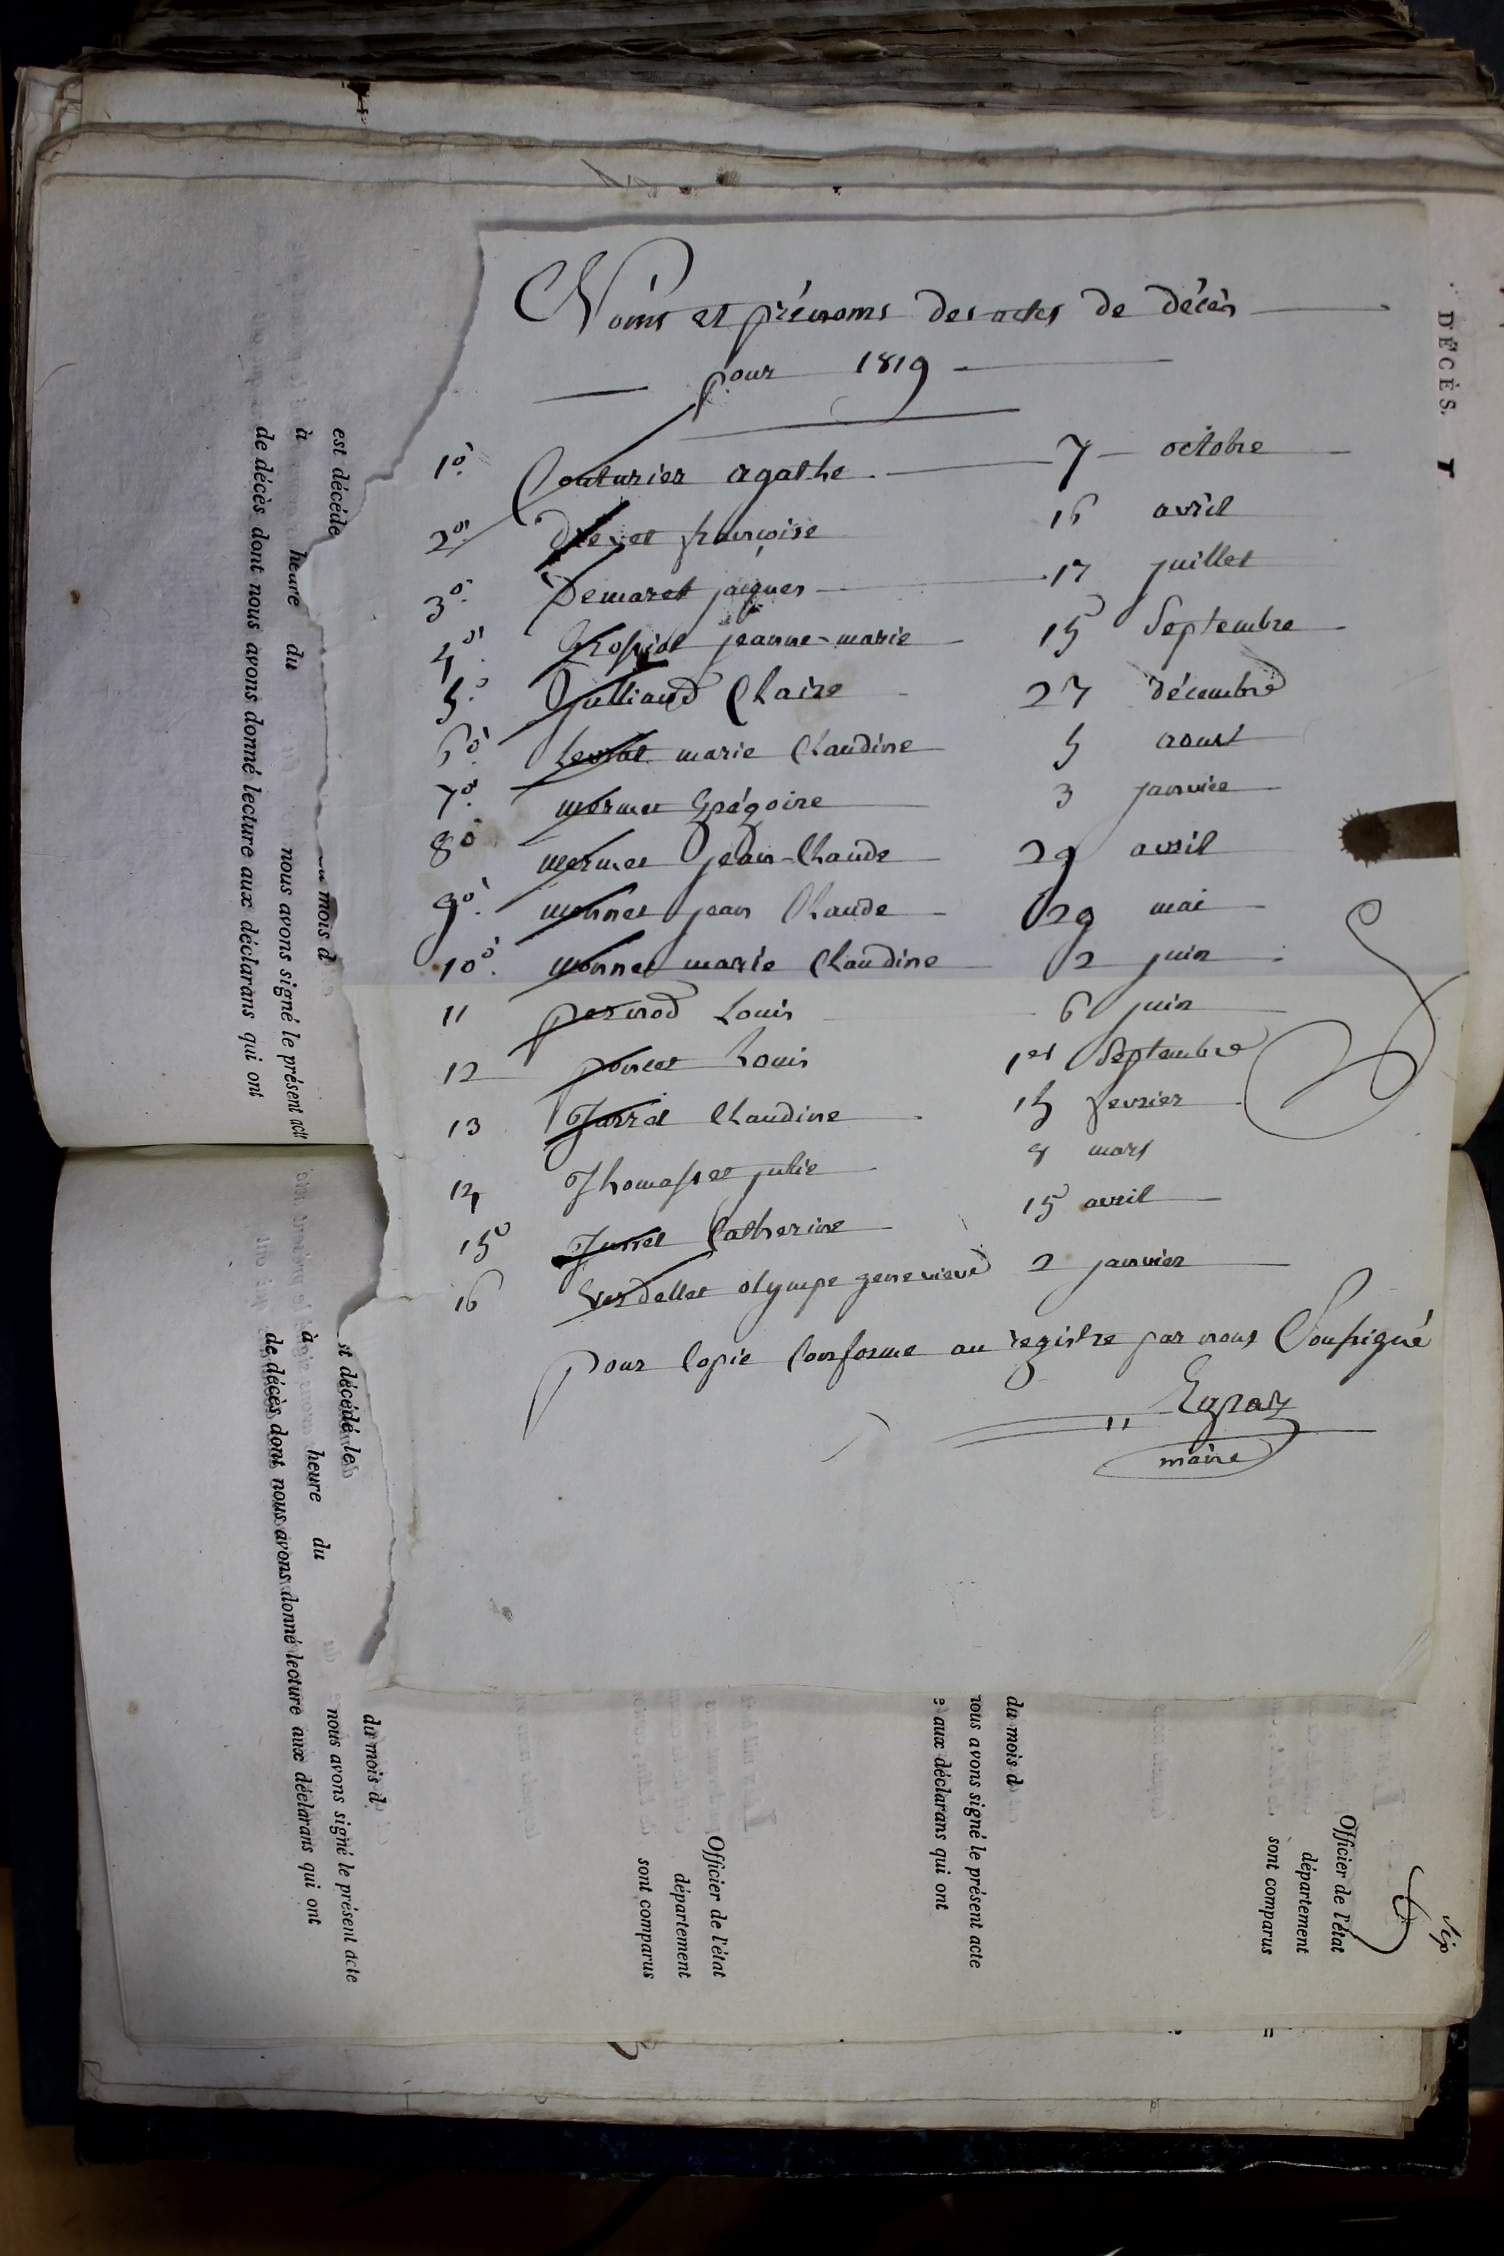 Noms et prénoms des actes de décès
pour 1819
1° Couturier agathe 7 octobre
2° Drevet françoise 16 avril
3° Demaret jacques 17 juillet
4° jeanne-marie 15 Septembre
5° Julliand Claire 27 décembre
6° Levrat marie Claudine 5 aoust
7° mermet Grégoire 3 janvier
8° mermet jean-Claude 29 avril
9° monnet jean Claude 29 mai
10° monnet marie Claudine 2 juin
11 pernod Louis 6 juin
12 poncet Louis 1er Septembre
13 Claudine 15 fevrier
14 Thomasset julie 8 mars
15° Catherine 15 avril
16 Verdellet olympe genevieve 2 janvier
pour Copie Conforme au registre par nous Soussigné
maire
DÉCÉS.
est décédé
du mois d
à heure du nous avons signé le présent acte
de décès dont nous avons donné lecture aux déclarans qui ont
st décédé le
du mois d
à heure du nous avons signé le présent acte
de décès dont nous avons donné lecture aux déclarans qui ont
du mois d
nous avons signé le présent acte
e aux déclarans qui ont
Officier de l'état
département
sont comparus
Officier de l'état
département
sont comparus